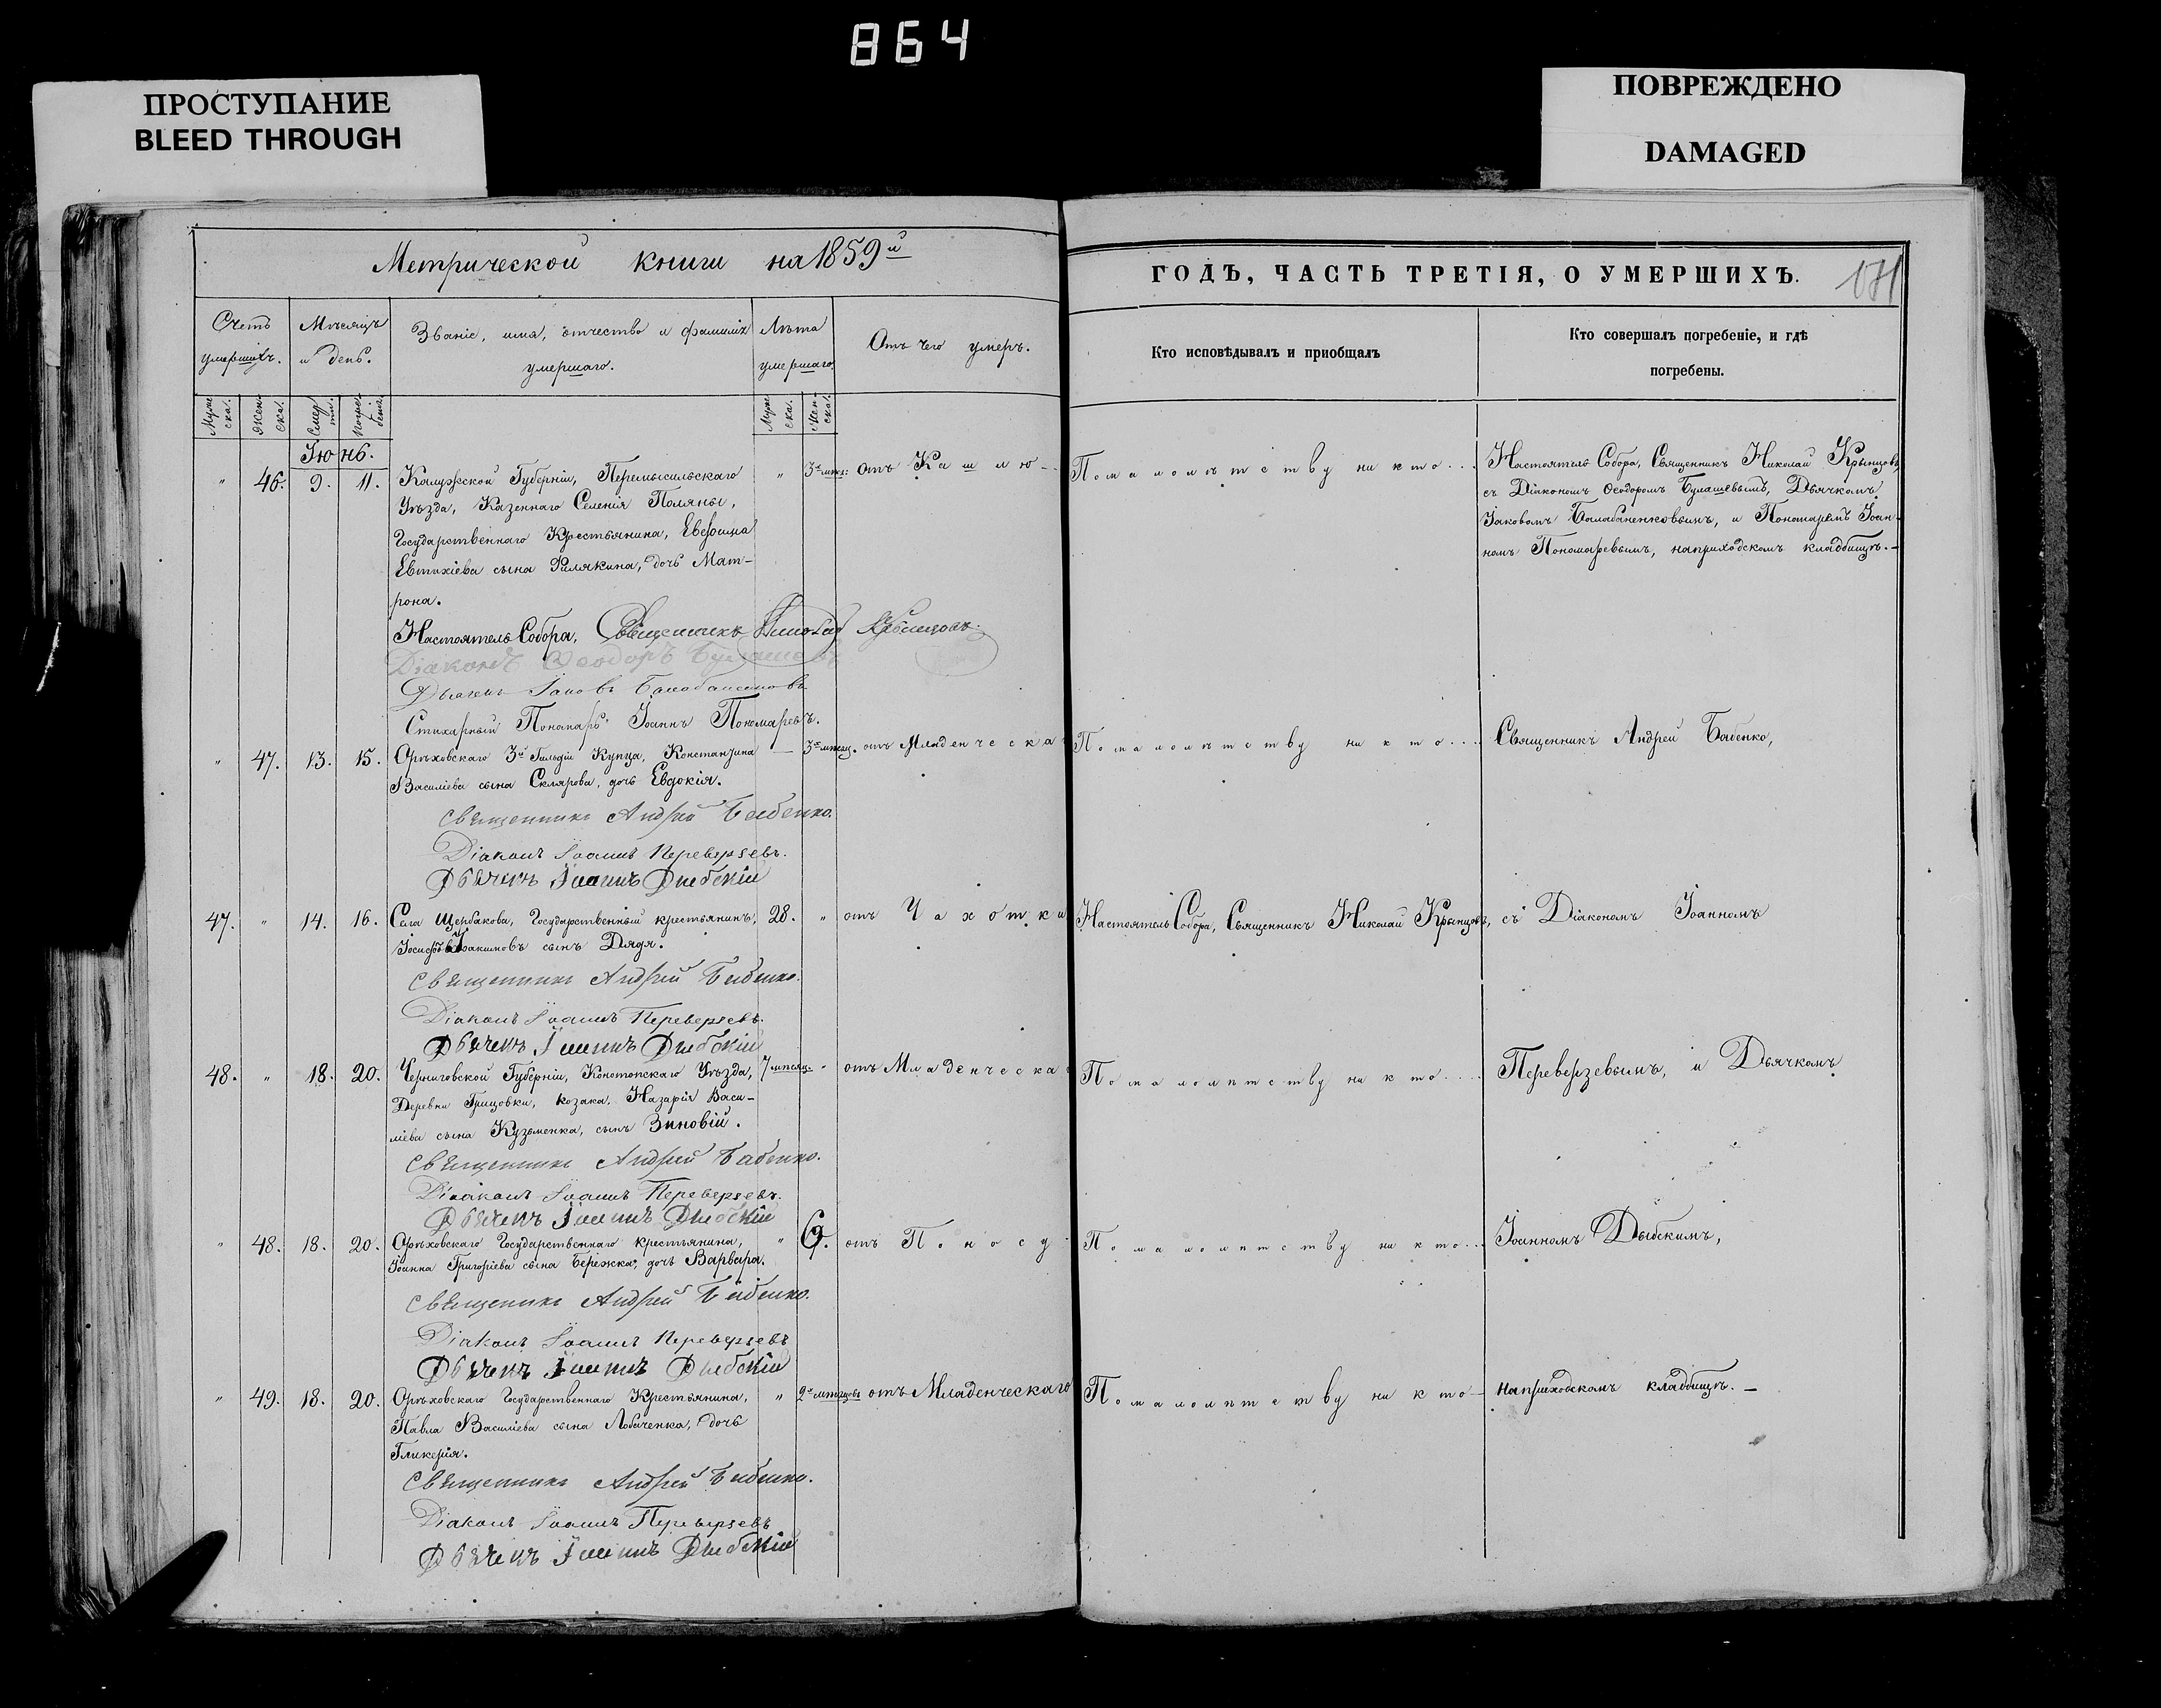 864
ПРОСТУПАНИЕ
BLEED THROUGH
ПОВРЕЖДЕНО
DAMAGED
Метрической книги на 1859й
ГОДЪ, ЧАСТЬ ТРЕТІЯ, О УМЕРШИХЪ.
Счетъ умершихъ.
Мѣсяцъ и день.
Званіе, имя, отчество и фамилія умершаго.
Лѣта умершаго.
Отъ чего умеръ.
Кто исповѣдывалъ и пріобщалъ
Кто совершалъ погребеніе, и гдѣ
погребены.
Муже ска.
Жен ска.
Смер ти.
Погре бенія.
Муже ска.
Жен ска.
Іюнь.
" 46. 9. 11. Калужской Губерніи, Перемысильскаго " 3х мѣся: отъ Кашлю - Помалолѣтству никто...
Уѣзда, Казеннаго Селенія Поляны,
Государственнаго Крестьянина, Евфима
Евтихіева сына Филякина, дочь Мат-
рона.
Настоятель Собора, Священникъ Николай Крынцовъ.
Діаконъ Ѳеодоръ Булашевъ
Дьячекъ Іаковъ Балабаненковъ
Стихарный Понамарь Іоаннъ Пономаревъ.
Настоятель Собора, Священникъ Николай Крынцовъ,
съ Діакономъ Ѳеодоромъ Булашевымъ, Дьячкомъ
Іаковомъ Балабаненковымъ, и Пономаремъ Іоан-
номъ Пономаревымъ, наприходскомъ кладбищѣ.-
" 47. 13. 15. Орѣховскаго 3й Гильдіи Купца, Константина — 3х мѣсяц. отъ Младенческа Помалолѣтству никто... Священникъ Андрей Бабенко,
Василіева сына Склярова, дочь Евдокія.
Священникъ Андрей Бабенко.
Діаконъ Іоаннъ Переверзевъ.
Дьячекъ Іоаннъ Дыбскій
47. " 14. 16. Села Щербакова, Государственный крестьянинъ, 28. " отъ Чахотки Настоятель Собора, Священникъ Николай Крынцовъ, съ Діакономъ Іоанномъ
Іосифъ Іоакимовъ сынъ Дядя.
Священникъ Андрей Бабенко.
Діаконъ Іоаннъ Переверзевъ.
Дьячекъ Іоаннъ Дыбскій
48. " 18. 20. Черниговской Губерніи, Конотопскаго Уѣзда, 7 мѣсяц. " отъ Младенческа Помалолѣтству никто.... Переверзевымъ, и Дьячкомъ
Деревни Грицовки, козака, Назарія Васи-
ліева сына Кузьменка, сынъ Зиновій.
Священникъ Андрей Бабенко.
Діаконъ Іоаннъ Переверзевъ.
Дьячекъ Іоаннъ Дыбскій
" 48. 18. 20. Орѣховскаго Государственнаго крестьянина, " 6. отъ Поносу Помалолѣтству никто... Іоанномъ Дыбскимъ,
Іоанна Григоріева сына Бережка, дочь Варвара.
Священникъ Андрей Бабенко.
Діаконъ Іоаннъ Переверзевъ
Дьячекъ Іоаннъ Дыбскій
" 49. 18. 20. Орѣховскаго Государственнаго Крестьянина, " 2х мѣсяцовъ отъ Младенческаго Помалолѣтству никто - наприходскомъ кладбищѣ. —
Павла Василіева сына Лобаченка, дочь
Гликерія.
Священникъ Андрей Бабенко.
Діаконъ Іоаннъ Переверзевъ
Дьячекъ Іоаннъ Дыбскій